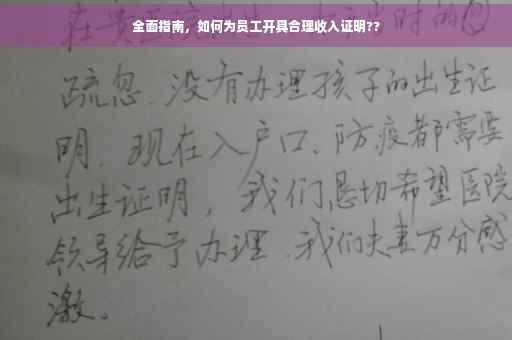 全面指南，如何为员工开具合理收入证明??
在贵
时的
疏忽、没有办理孩子的出生证
明、现在入户口、防疫都需要
出生证明，我们恳切希望医院
领导给予办理、我们夫妻万分感
激。